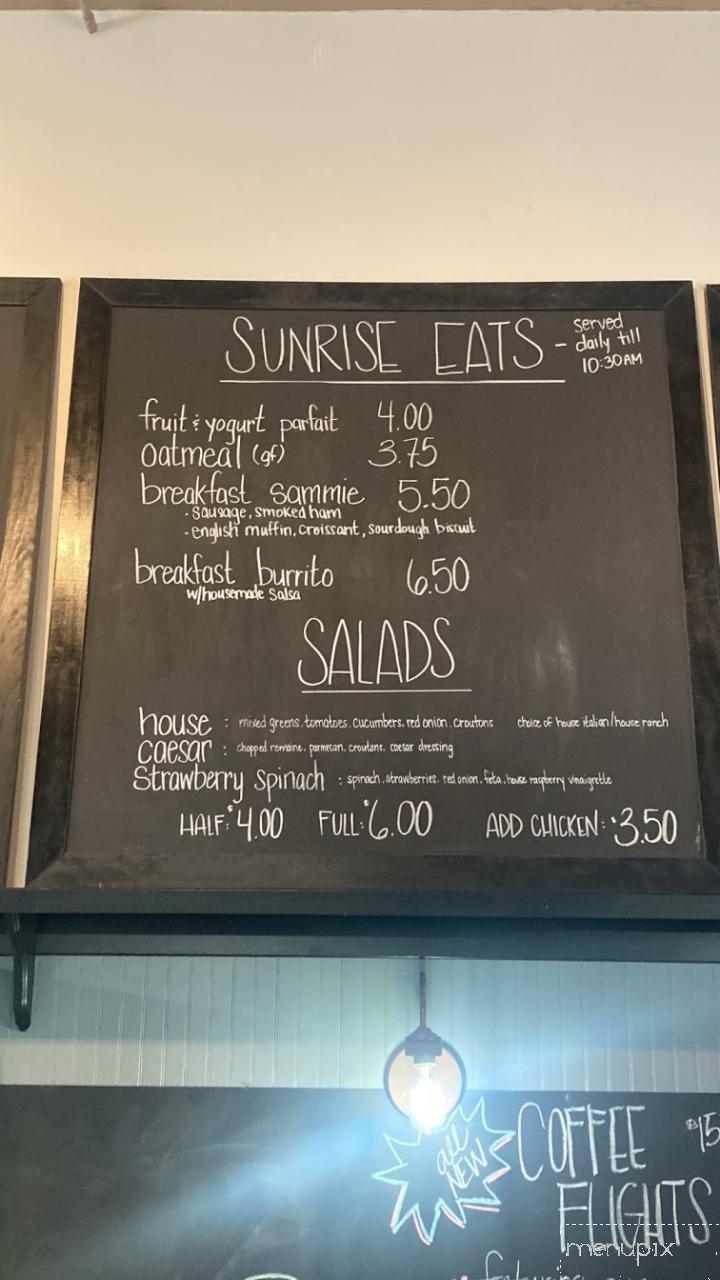 SUNRISE EATS - served daily till 10:30AM
fruit & yogurt parfait 4.00
oatmeal (gf) 3.75
breakfast sammie 5.50
- sausage, smoked ham
- english muffin, croissant, sourdough biscuit
breakfast burrito 6.50
w/housemade salsa
SALADS
house : mixed greens, tomatoes, cucumbers, red onion, croutons choice of house italian/house ranch
caesar : chopped romaine, parmesan, croutons, caesar dressing
Strawberry Spinach : spinach, strawberries, red onion, feta, house raspberry vinaigrette
HALF: $4.00 FULL: $6.00 ADD CHICKEN: $3.50
ALL NEW
COFFEE $15
FLIGHTS
menupix